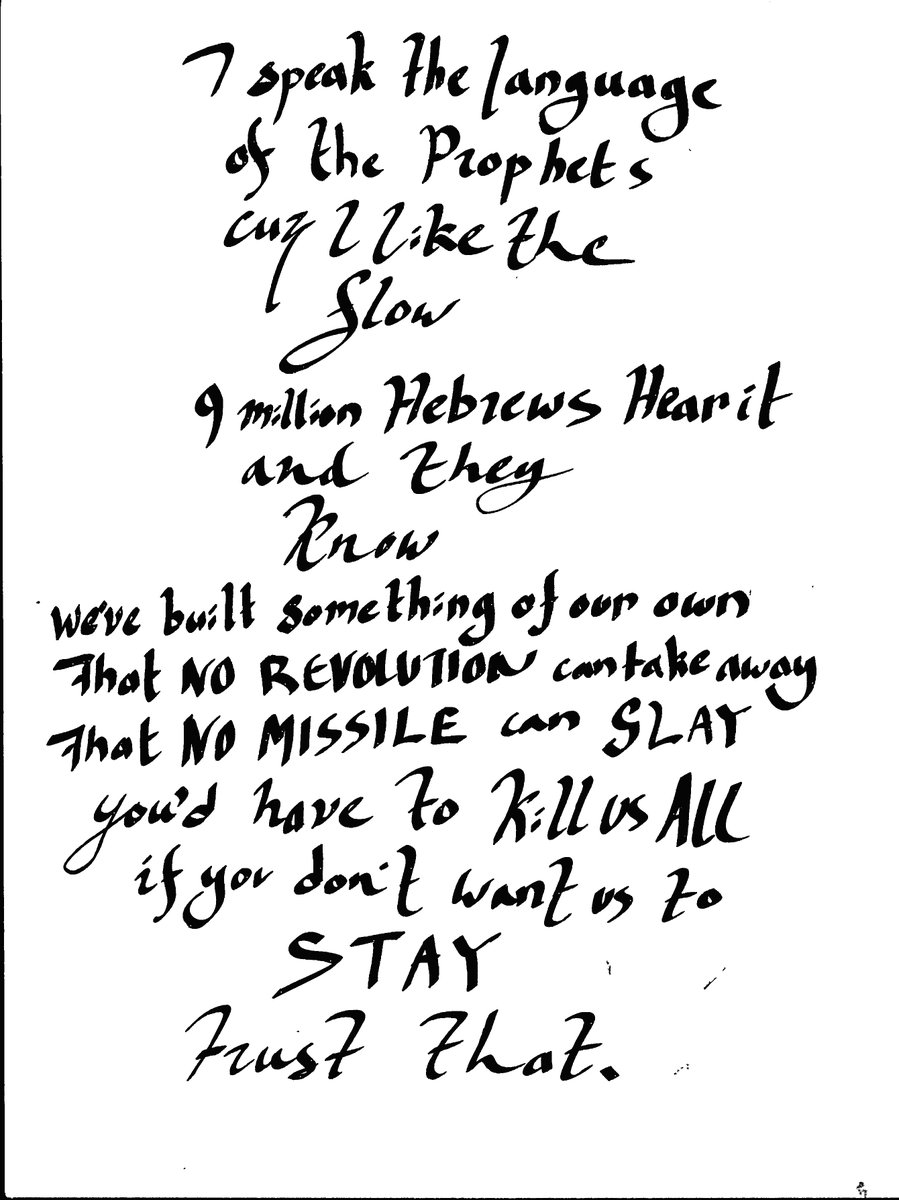 I speak the language
of the Prophets
cuz I like the
flow
9 million Hebrews Hear it
and they
Know
we've built something of our own
That NO REVOLUTION can take away
That NO MISSILE can SLAY
you'd have to Kill us All
if you don't want us to
STAY
Trust that.